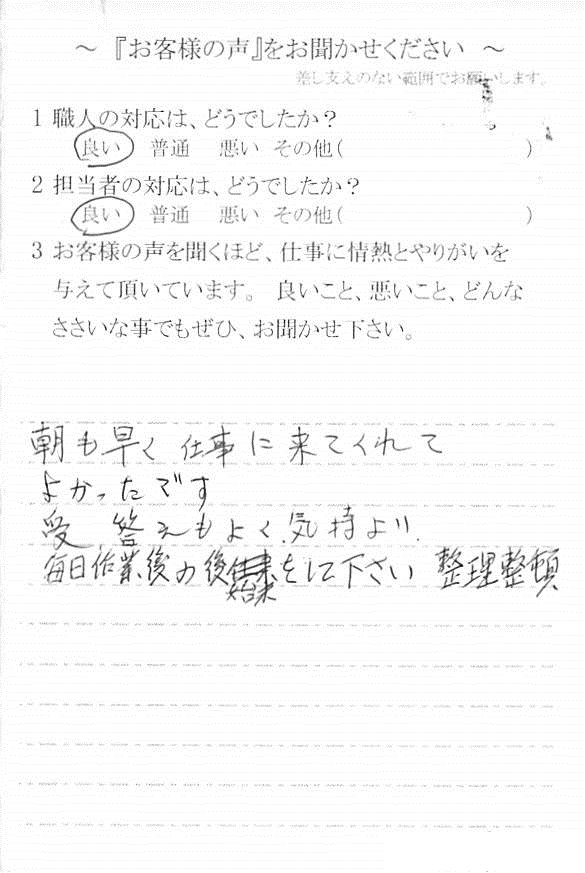 ～ 『お客様の声』をお聞かせください ～
差し支えのない範囲でお願いします。
1 職人の対応は、どうでしたか？
良い 普通 悪い その他( )
2 担当者の対応は、どうでしたか？
良い 普通 悪い その他( )
3 お客様の声を聞くほど、仕事に情熱とやりがいを
与えて頂いています。 良いこと、悪いこと、どんな
ささいな事でもぜひ、お聞かせ下さい。
朝も早く 仕事に来てくれて
よかったです
受 答えもよく、気持よい、
毎日作業後の後始末をして下さい 整理整頓